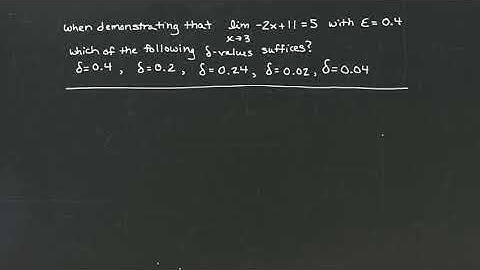 when demonstrating that lim -2x+11=5 with ε=0.4
x→3
which of the following δ-values suffices?
δ=0.4, δ=0.2, δ=0.24, δ=0.02, δ=0.04